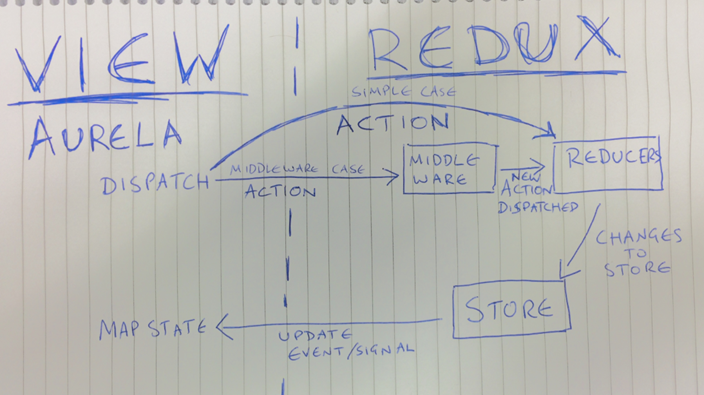 VIEW
REDUX
SIMPLE CASE
AURELA
ACTION
DISPATCH
MIDDLEWARE CASE
ACTION
MIDDLE
WARE
NEW
ACTION
DISPATCHED
REDUCERS
CHANGES
TO
STORE
STORE
MAP STATE
UPDATE
EVENT/SIGNAL